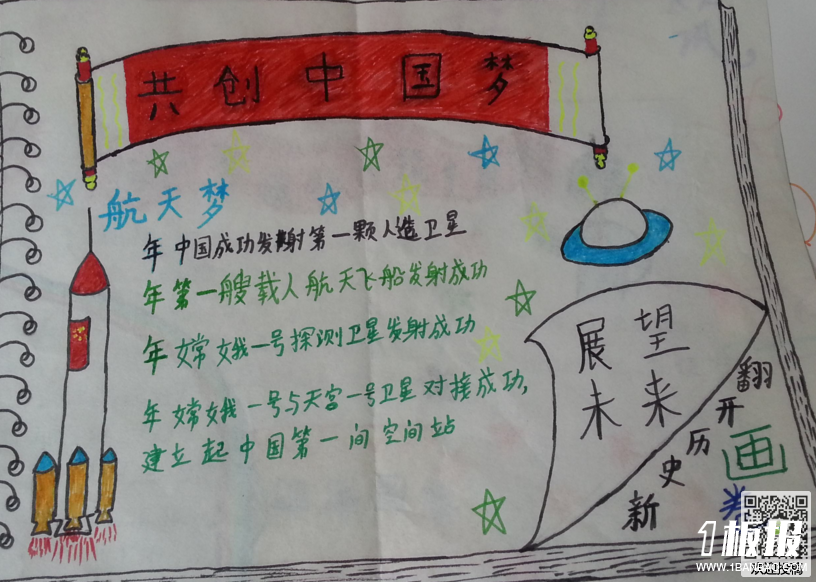 共创中国梦
航天梦
年中国成功发射第一颗人造卫星
年第一艘载人航天飞船发射成功
年嫦娥一号探测卫星发射成功
年嫦娥一号与天宫一号卫星对接成功,
建立起中国第一间空间站
展望
未来
翻开历史新
画
1板报
WWW.1BANBAO.COM